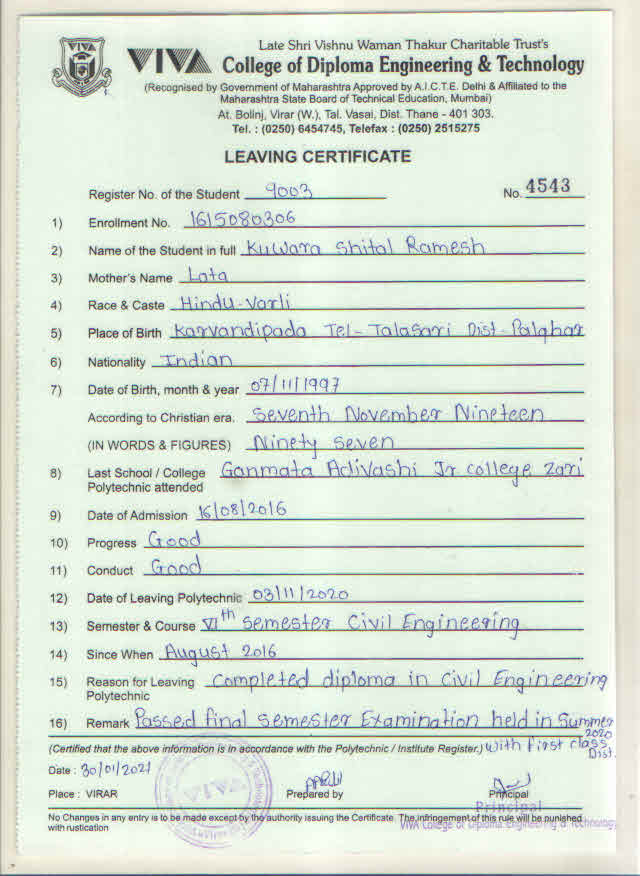 VIVA
Late Shri Vishnu Waman Thakur Charitable Trust's
VIVA College of Diploma Engineering & Technology
(Recognised by Government of Maharashtra Approved by A.I.C.T.E. Delhi & Affiliated to the
Maharashtra State Board of Technical Education, Mumbai)
At. Bolinj, Virar (W.), Tal. Vasai, Dist. Thane - 401 303.
Tel. : (0250) 6454745, Telefax : (0250) 2515275
LEAVING CERTIFICATE
Register No. of the Student 9003 No. 4543
1) Enrollment No. 1615080306
2) Name of the Student in full Kuwara Shital Ramesh
3) Mother's Name Lata
4) Race & Caste Hindu-Varli
5) Place of Birth Karvandipada Tel-Talasari Dist-Palghar
6) Nationality Indian
7) Date of Birth, month & year 07/11/1997
According to Christian era. Seventh November Nineteen
(IN WORDS & FIGURES) Ninety Seven
8) Last School / College Ganmata Adivashi Jr college Zari
Polytechnic attended
9) Date of Admission 16/08/2016
10) Progress Good
11) Conduct Good
12) Date of Leaving Polytechnic 03/11/2020
13) Semester & Course VIth Semester Civil Engineering
14) Since When August 2016
15) Reason for Leaving Completed diploma in Civil Engineering
Polytechnic
16) Remark Passed final Semester Examination held in Summer
2020
(Certified that the above information is in accordance with the Polytechnic / Institute Register.) With first class
Dist.
Date : 30/01/2021
Place : VIRAR Prepared by Principal
Principal
VIVA College of Diploma Engineering & Technology
No Changes in any entry is to be made except by the authority issuing the Certificate. The infringement of this rule will be punished
with rustication